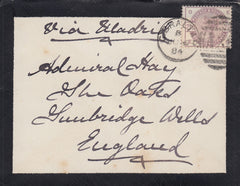 Via Madrid
Admiral Hay
The Oaks
Tunbridge Wells
England
84